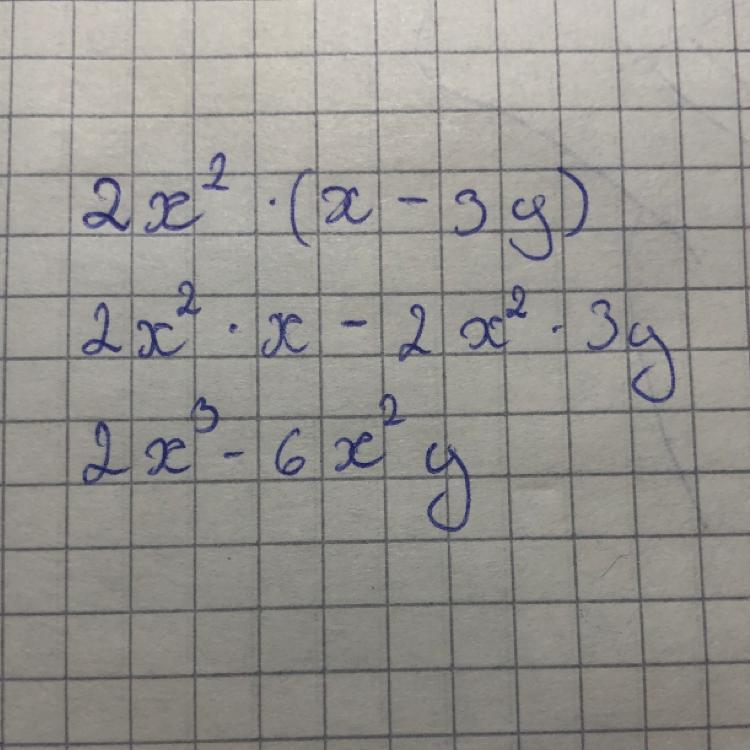 2x² · (x - 3y)
2x² · x - 2x² · 3y
2x³ - 6x²y